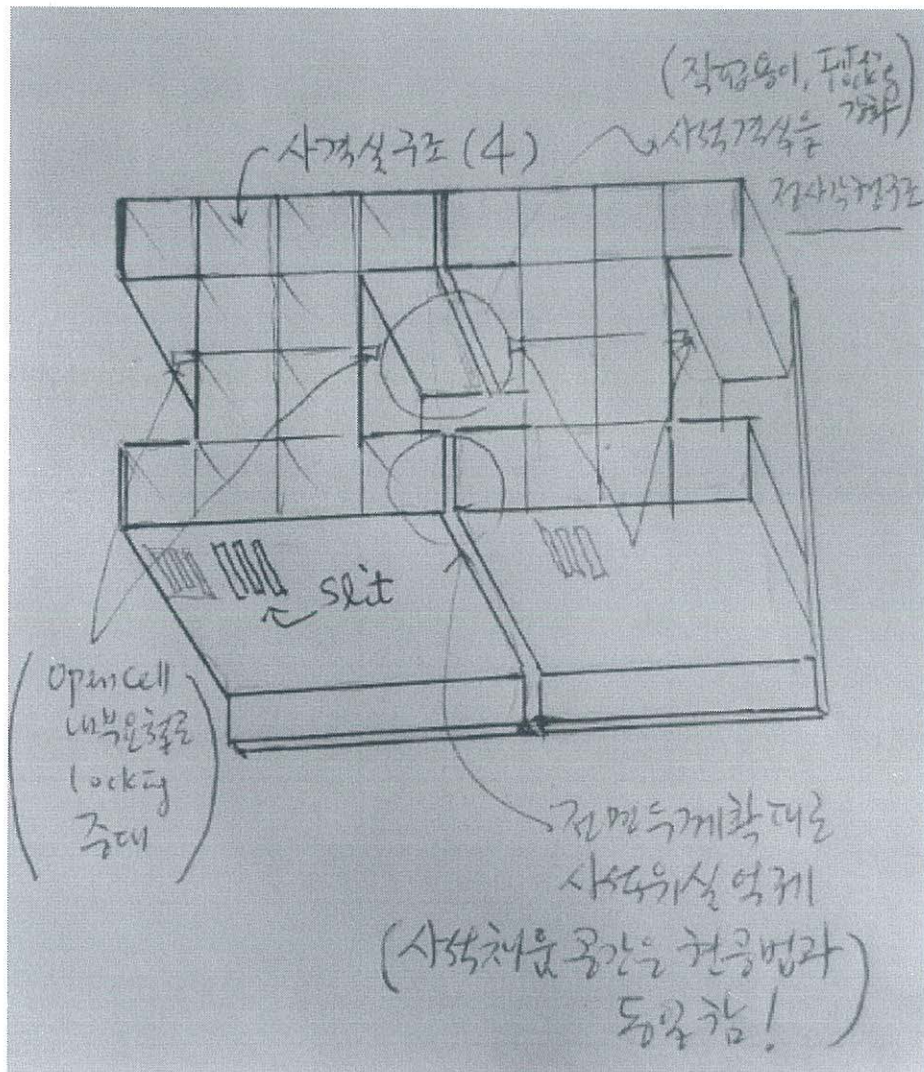 (작업용이, Interlocking 강화)
사격실구조 (4)
사석격실을
정사각형구조
slit
Open cell
내부요철로
locking
증대
전면두께확대로
사석유실 억제
(사석채움 공간은 현공법과
동일함!)